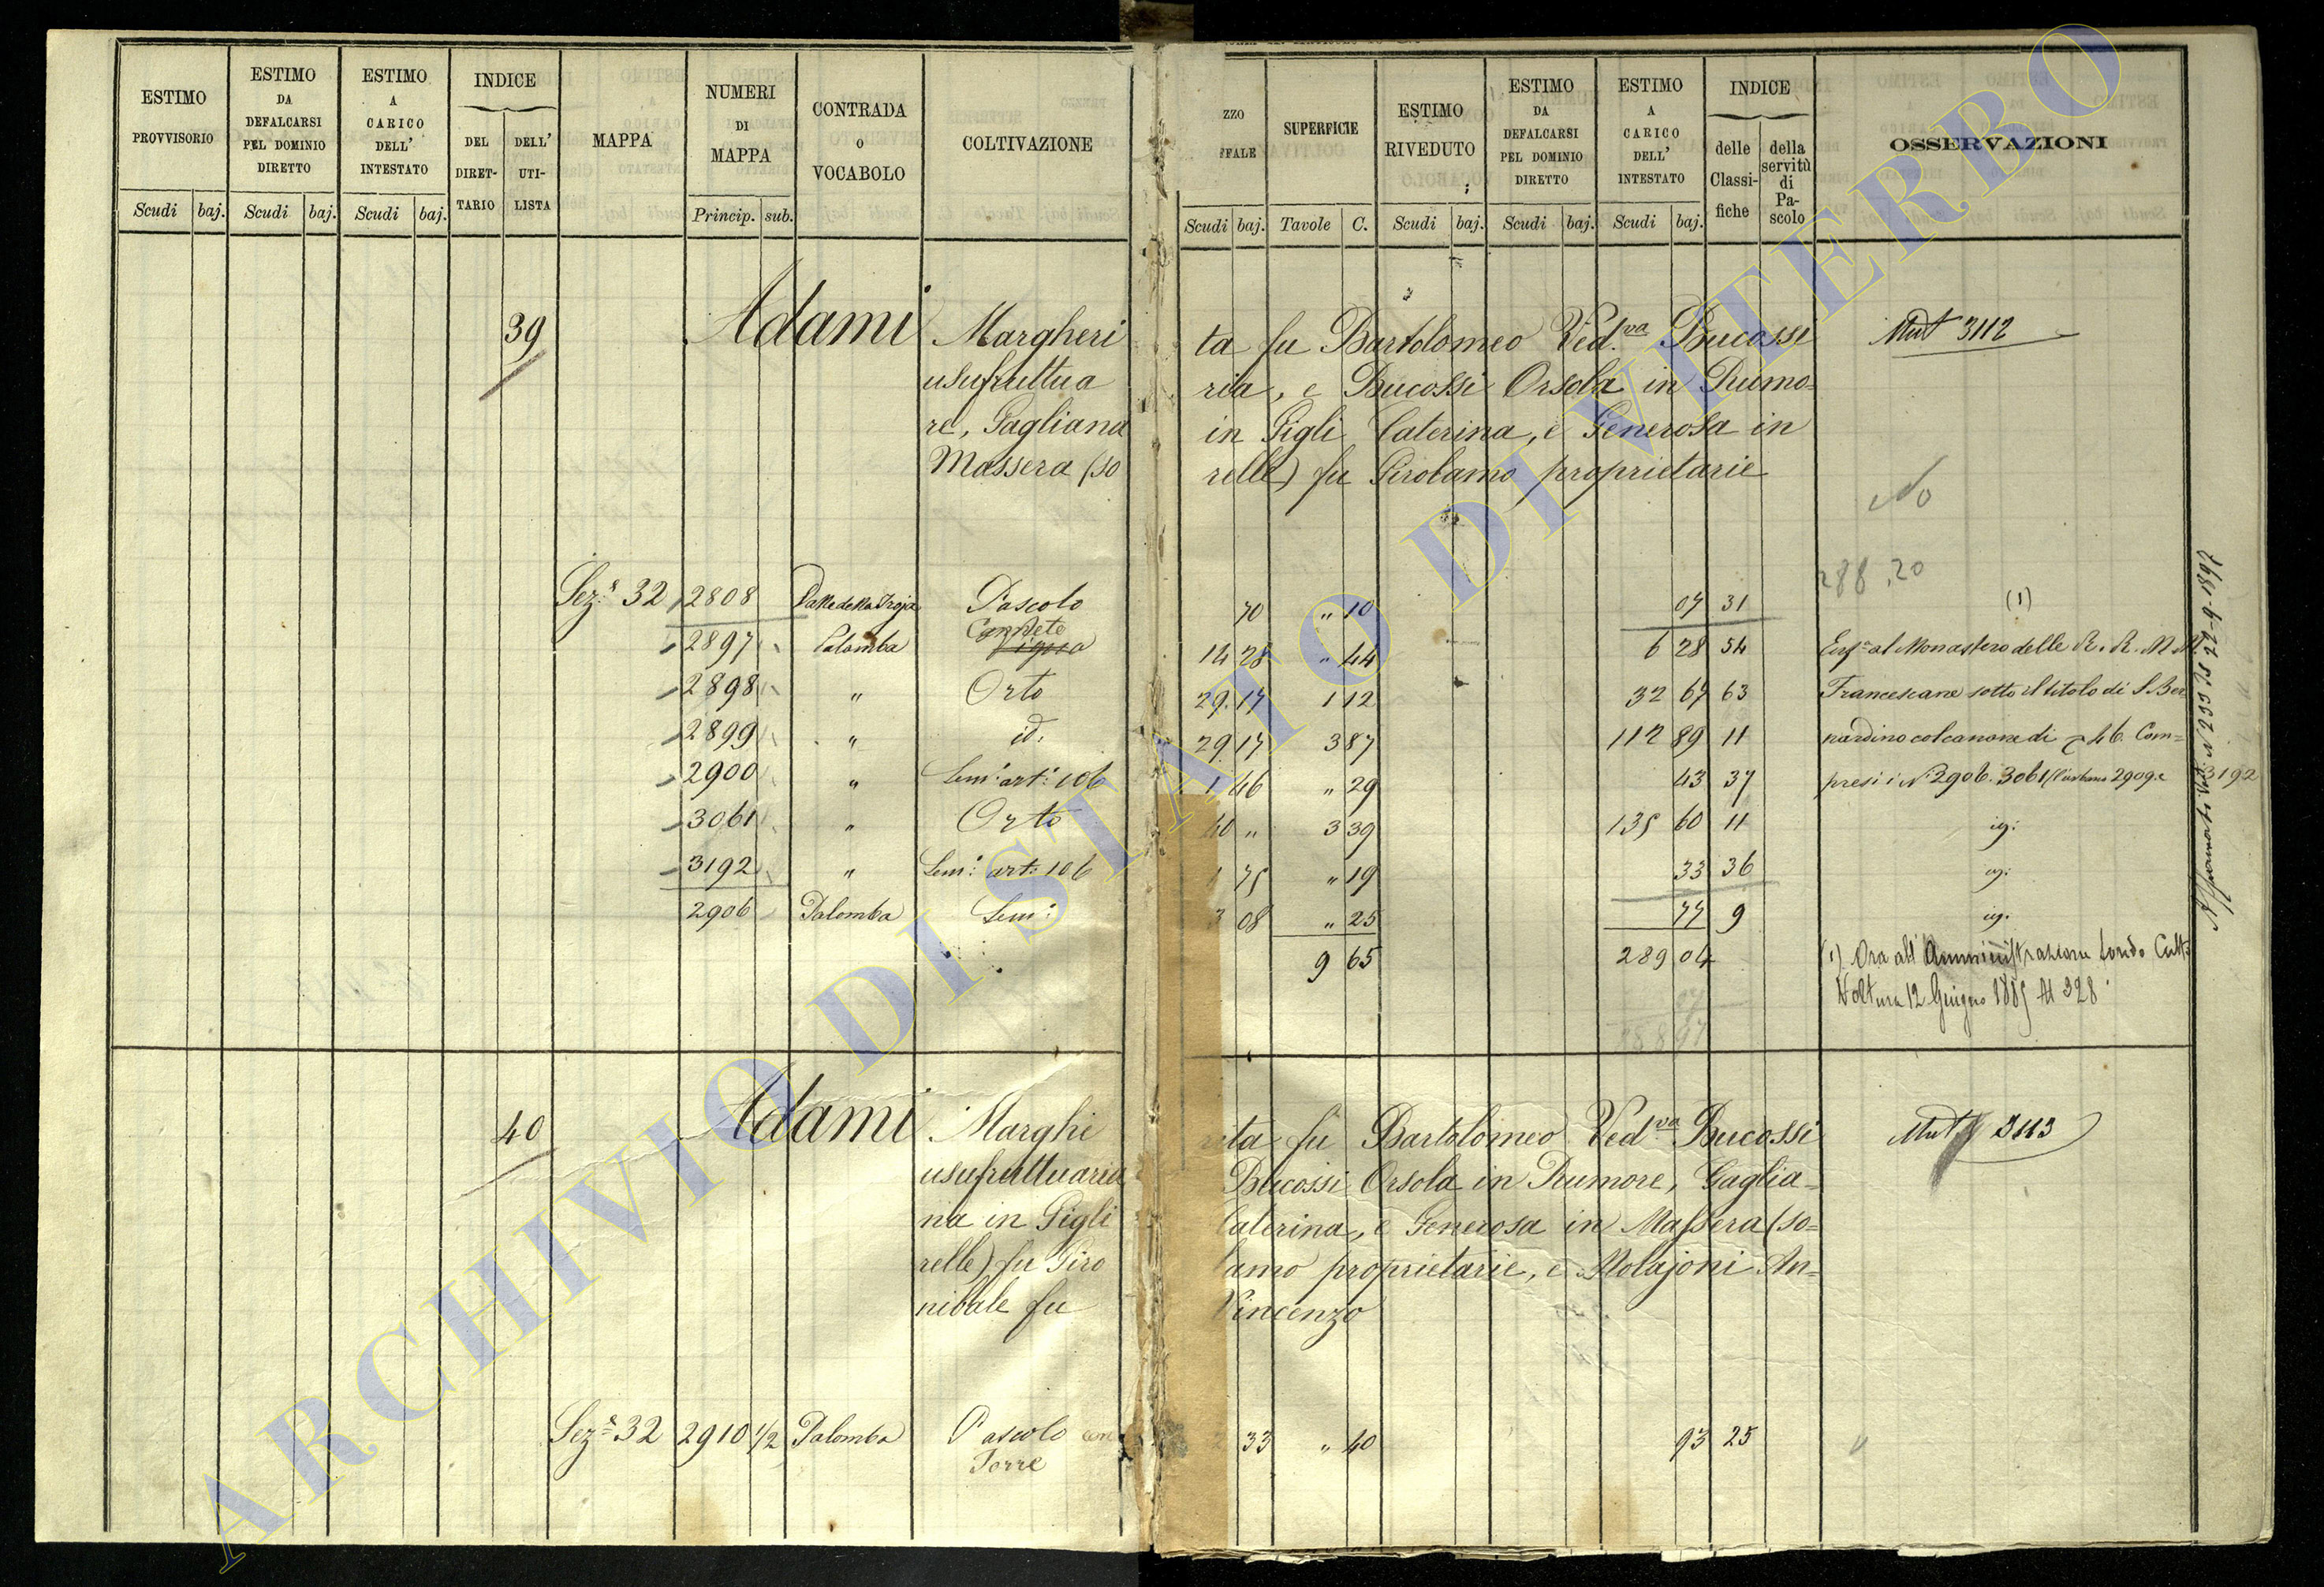 ESTIMO PROVVISORIO
ESTIMO DA DEFALCARSI PEL DOMINIO DIRETTO
ESTIMO A CARICO DELL' INTESTATO
INDICE
DEL DIRETTARIO
DELL' UTILISTA
MAPPA
NUMERI DI MAPPA
CONTRADA o VOCABOLO
COLTIVAZIONE
ZZO
FFALE
SUPERFICIE
ESTIMO RIVEDUTO
ESTIMO DA DEFALCARSI PEL DOMINIO DIRETTO
ESTIMO A CARICO DELL' INTESTATO
INDICE
delle Classifiche
della servitù di Pascolo
OSSERVAZIONI
Scudi baj. Scudi baj. Scudi baj. Princip. sub.
Scudi baj. Tavole C. Scudi baj. Scudi baj. Scudi baj.
39 Adami Margheri ta fu Bartolomeo Ved.va Bucossi Mut 3112
usufruttua ria, e Bucossi Orsola in Rumo=
re, Gagliana in Gigli Caterina, e Generosa in
Massera (so relle) fu Girolamo proprietarie
No
288,20
Sez.e 32 2808 Valle della Troja Pascolo 70 " 10 07 31 (1)
2897 Palomba Canneto Vigna 14 28 " 44 6 28 54 al Monastero delle R. R. M M.
2898 " Orto 29 17 1 12 32 67 63 Francescane sotto il titolo di S Ber
2899 " id. 29 17 3 87 112 89 11 nardino col canone di 46. Com=
2900 " Sem: art: 106 1 46 " 29 43 37 presi i N. 2906. 3061 2909. e 3192
3061 " Orto 40 " 3 39 135 60 11 ig:
3192 " Sem: art: 106 1 75 " 19 33 36 ig:
2906 Palomba Sem: 3 08 " 25 77 9 ig.
9 65 289 04
1) Ora all' Amministrazione fondo Cult:
Voltura 12 Giugno 1885 N 328
Affrancati Vol: N 255 29-9-1897
40 Adami Marghe rita fu Bartolomeo Ved.va Bucossi Mut 3113
usufruttuaria Bucossi Orsola in Rumore, Gaglia=
na in Gigli Caterina, e Generosa in Massera (so=
relle) fu Giro lamo proprietarie, e Molajoni An=
nibale fu Vincenzo
Sez.e 32 2910 1/2 Palomba Pascolo con 2 33 " 40 93 25
Torre
ARCHIVIO DI STATO DI VITERBO